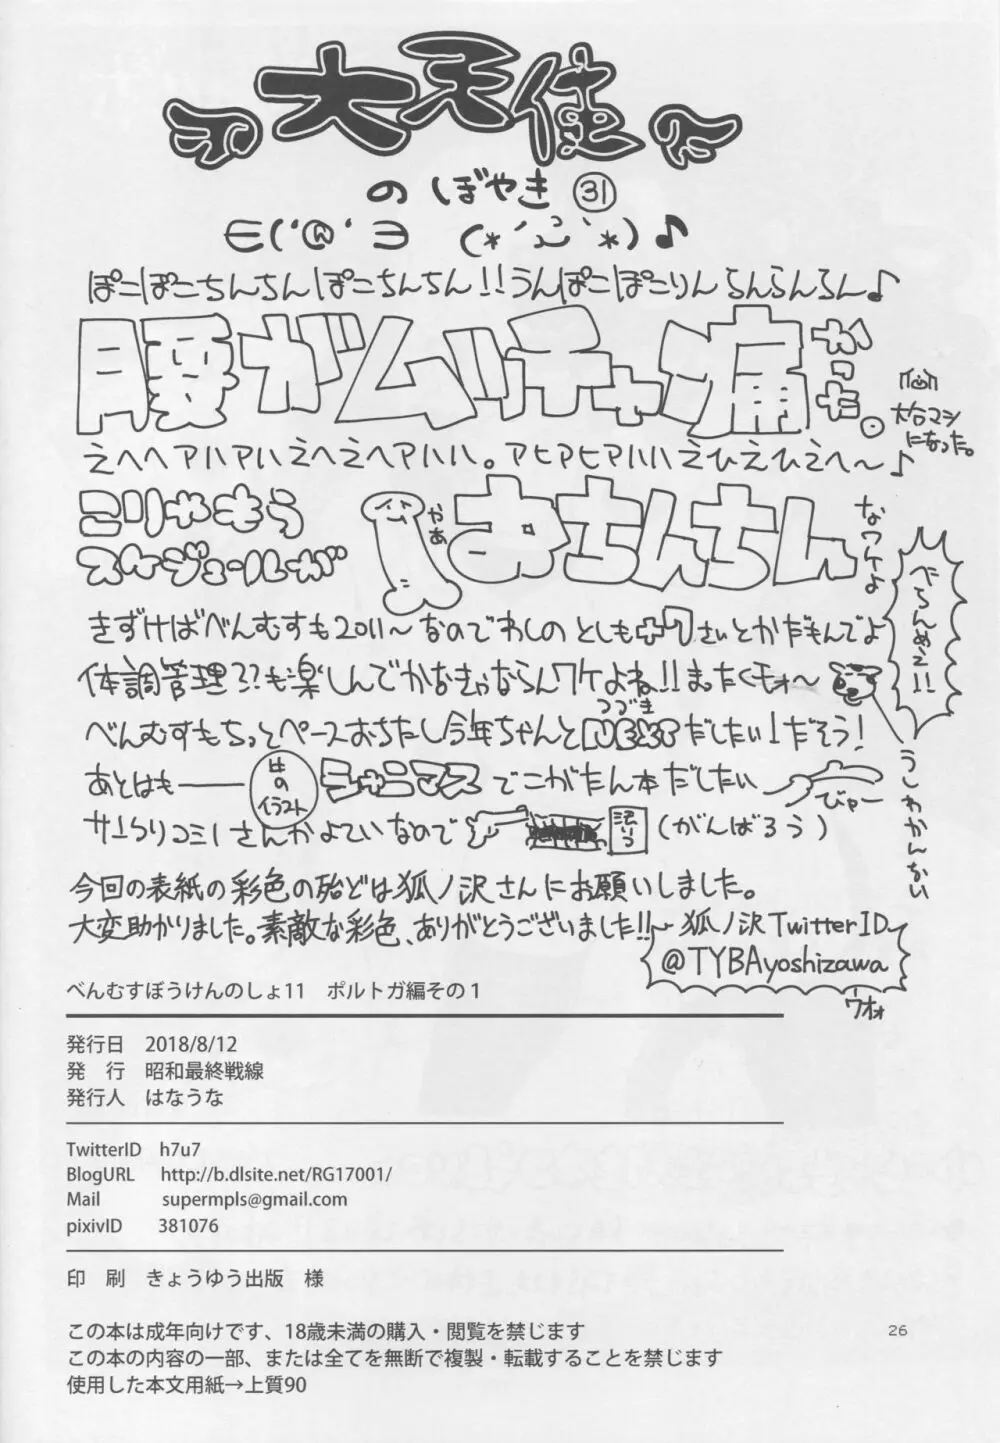 大天使
のぼやき ㉛
∈('@'∋ (*´ `*)♪
ぽこぽこちんちんぽこちんちん!!うんぽこぽこりんらんらんらん♪
腰がムッチャ痛かった。
大分マシになった。
えへへアハアハえへえへアハハハ。アヒアヒアハハえひえひえへ〜♪
こりゃもう
スケジュールが
やあ
おちんちん
なワケよ
べらんめえ!!
きずけばべんむすも2011〜なのでわしのとしも
体調管理??も楽しんでかなきゃならんワケよね!!まったくモォ〜
うしわかんない
つづき
べんむすもちっとペースおちたし今年ちゃんとNEXTだしたい!だそう!
あとはも——
牛のイラスト
シャニマスでこがたん本だしたい
びゃー
(がんばろう)
今回の表紙の彩色の殆どは狐ノ沢さんにお願いしました。
大変助かりました。素敵な彩色、ありがとうございました!!
狐ノ沢TwitterID
@TYBAyoshizawa
ワオォ
べんむすぼうけんのしょ11 ポルトガ編その1
発行日 2018/8/12
発 行 昭和最終戦線
発行人 はなうな
TwitterID h7u7
BlogURL http://b.dlsite.net/RG17001/
Mail supermpls@gmail.com
pixivID 381076
印 刷 きょうゆう出版 様
この本は成年向けです、18歳未満の購入・閲覧を禁じます
この本の内容の一部、または全てを無断で複製・転載することを禁じます
使用した本文用紙→上質90
26